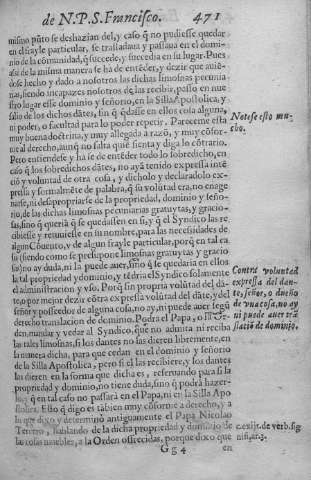 de N.P.S. Francisco. 471
mismo pũto se deshazian del, y caso q̃ no pudiesse quedar
en el frayle particular, se trasladaua y passaua en el domi-
nio de la comunidad, q̃ sucede, y succedia en su lugar. Pues
assi de la misma manera se ha de entẽder, y dezir que auiẽ-
dose hecho y dado a nosotros las dichas limosnas pecunia-
rias, siendo incapazes nosotros de las recibir, passo en nue
stro lugar esse dominio y señorio, en la Silla Apostolica, y
salio de los dichos dãtes, sin q̃ quedasse en ellos cosa alguna,
ni poder, o facultad para lo poder repetir. Pareceme esta
muy buena doctrina, y muy allegada a razõ, y muy cõfor-
me al derecho, aunq̃ no falta quiẽ sienta y diga lo cõtrario.
Pero entiendese y ha se de entẽder todo lo sobredicho, en
caso q̃ los sobredichos dãtes, no ayã tenido expressa intẽ
ció y voluntad de otra cosa, y dicholo y declaradolo ex-
pressa y formalmẽte de palabra, q̃ su volũtad era, no enage
narse, ni desapropiarse de la propriedad, dominio y seño-
rio, de las dichas limosnas pecuniarias gratuytas, y gracio-
sas, sino q̃ queriã q̃ se quedassen en si, y q̃ el Syndico las re
cibiesse y tuuiesse en su nombre, para las necessidades de
algun Cõuento, v de algun frayle particular, porq̃ en tal ca
so (siendo como se presupone limosnas gratuytas y gracio
sas) no ay duda, ni la puede auer, sino q̃ se quedaria en ellos
la tal propriedad y dominio, y tẽdria el Syndico solamente
el administracion y vso. Porq̃ sin propria volũtad del dã-
te, o por mejor dezir cõtra expressa volũtad del dãte, y del
señor y posseedor de alguna cosa, no ay, ni puede auer segũ
derecho translacion de dominio. Podra el Papa, o la Or-
den, mandar y vedar al Syndico, que no admita ni reciba
las tales limosnas, si los dantes no las dieren libremente, en
la manera dicha, para que cedan en el dominio y señorio
de la Silla Apostolica, pero si el las recibiere, y los dantes
las dieren en la forma que dicha es, reseruando para si la
propriedad y dominio, no tiene duda, sino q̃ podrá hazer-
se, y q̃ en tal caso no passará en el Papa, ni en la Silla Apo
stolica. Esto q̃ digo es tãbien muy cõforme a derecho, y a
lo que dixo y determinó antiguamente el Papa Nicolao
Tercero, hablando de la dicha propriedad y dominio de
las cosas muebles, a la Orden ofrecidas, porque dixo que
Gg4 en
Notese esto mu-
cho.
Contra voluntad
expressa del dan-
te, señor, o dueño
de vna cosa, no ay
ni puede auer trã
slació de dominio.
c. exijt. de verb. sig
nifi. ar. 3.